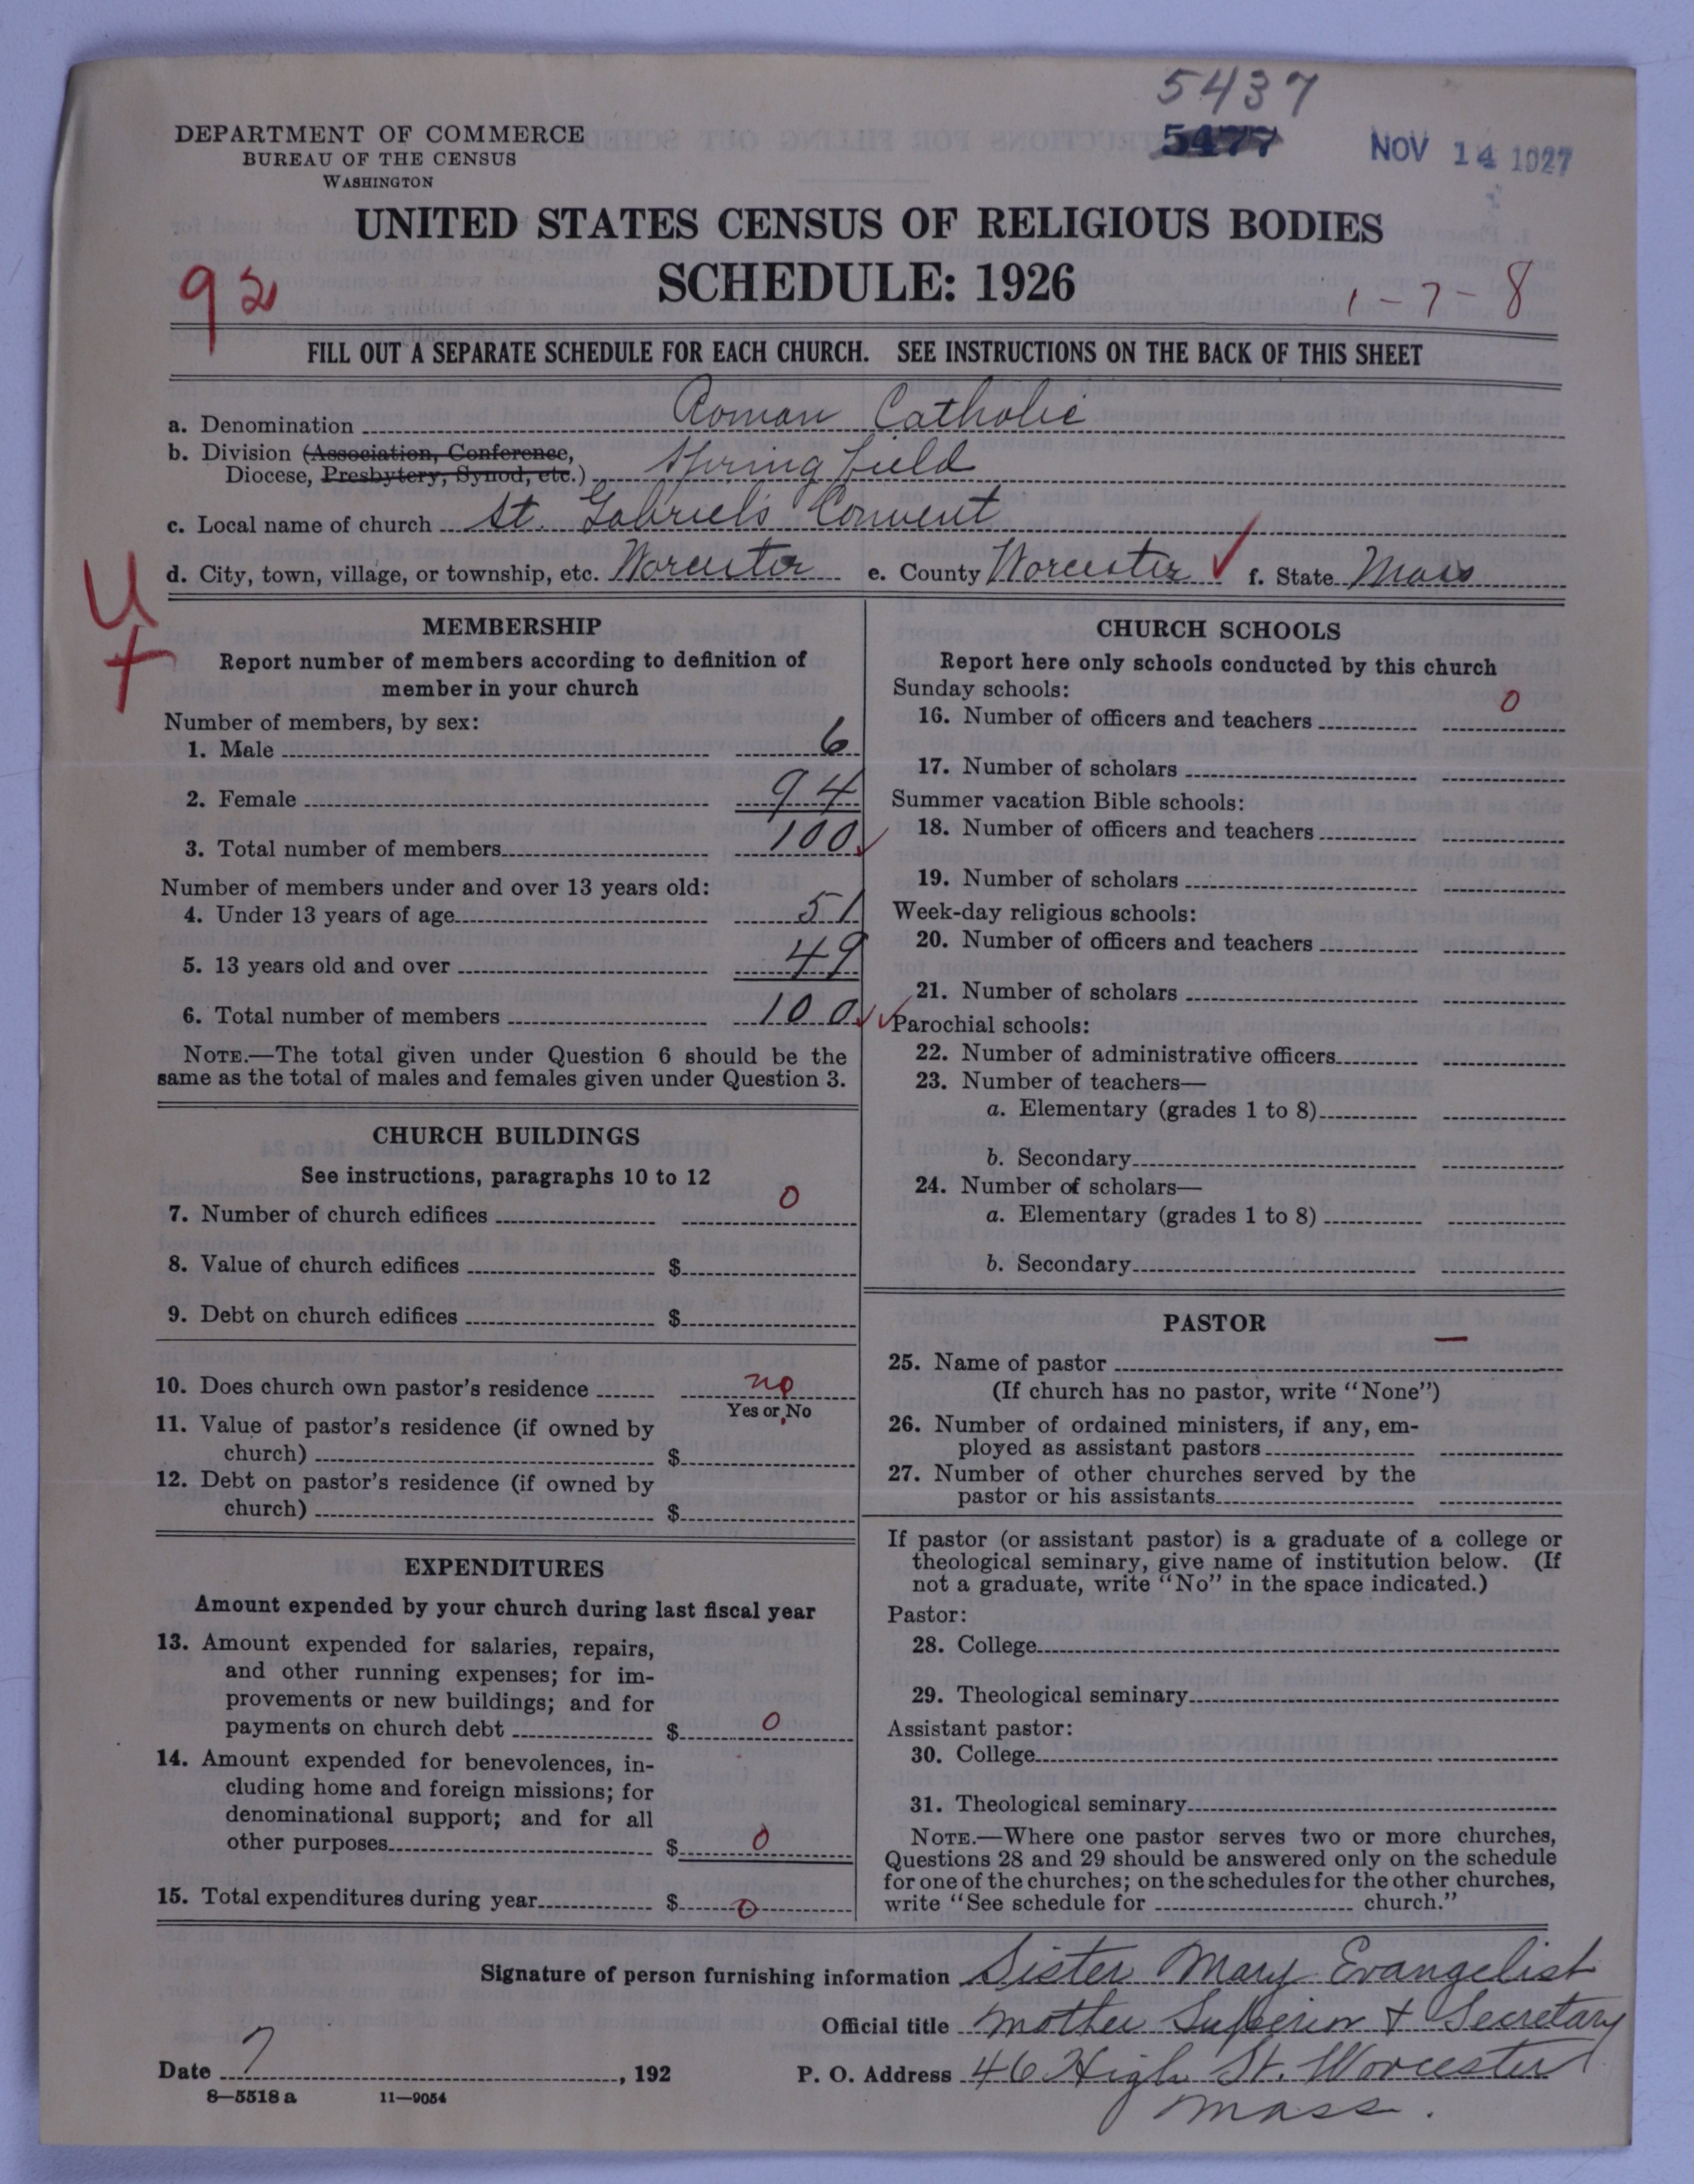 5437
5477
NOV 14 1927
DEPARTMENT OF COMMERCE
BUREAU OF THE CENSUS
WASHINGTON
UNITED STATES CENSUS OF RELIGIOUS BODIES
SCHEDULE: 1926
92
1-7-8
FILL OUT A SEPARATE SCHEDULE FOR EACH CHURCH. SEE INSTRUCTIONS ON THE BACK OF THIS SHEET
a. Denomination Roman Catholic
b. Division (Association, Conference,
Diocese, Presbytery, Synod, etc.) Springfield
c. Local name of church St. Gabriel's Convent
d. City, town, village, or township, etc. Worcester e. County Worcester ✓ f. State Mass
U
+
MEMBERSHIP
Report number of members according to definition of
member in your church
Number of members, by sex:
1. Male 6
2. Female 94
3. Total number of members 100 ✓
Number of members under and over 13 years old:
4. Under 13 years of age 51
5. 13 years old and over 49
6. Total number of members 100 ✓✓
NOTE.—The total given under Question 6 should be the
same as the total of males and females given under Question 3.
CHURCH BUILDINGS
See instructions, paragraphs 10 to 12
7. Number of church edifices 0
8. Value of church edifices $
9. Debt on church edifices $
10. Does church own pastor's residence no
Yes or No
11. Value of pastor's residence (if owned by
church) $
12. Debt on pastor's residence (if owned by
church) $
EXPENDITURES
Amount expended by your church during last fiscal year
13. Amount expended for salaries, repairs,
and other running expenses; for im-
provements or new buildings; and for
payments on church debt $ 0
14. Amount expended for benevolences, in-
cluding home and foreign missions; for
denominational support; and for all
other purposes $ 0
15. Total expenditures during year $ 0
CHURCH SCHOOLS
Report here only schools conducted by this church
Sunday schools:
16. Number of officers and teachers 0
17. Number of scholars
Summer vacation Bible schools:
18. Number of officers and teachers
19. Number of scholars
Week-day religious schools:
20. Number of officers and teachers
21. Number of scholars
Parochial schools:
22. Number of administrative officers
23. Number of teachers—
a. Elementary (grades 1 to 8)
b. Secondary
24. Number of scholars—
a. Elementary (grades 1 to 8)
b. Secondary
PASTOR
25. Name of pastor —
(If church has no pastor, write "None")
26. Number of ordained ministers, if any, em-
ployed as assistant pastors
27. Number of other churches served by the
pastor or his assistants
If pastor (or assistant pastor) is a graduate of a college or
theological seminary, give name of institution below. (If
not a graduate, write "No" in the space indicated.)
Pastor:
28. College
29. Theological seminary
Assistant pastor:
30. College
31. Theological seminary
NOTE.—Where one pastor serves two or more churches,
Questions 28 and 29 should be answered only on the schedule
for one of the churches; on the schedules for the other churches,
write "See schedule for church."
Signature of person furnishing information Sister Mary Evangelist
Official title Mother Superior + Secretary
Date 7, 192
P. O. Address 46 High St. Worcester
Mass.
8—5518 a 11—9054